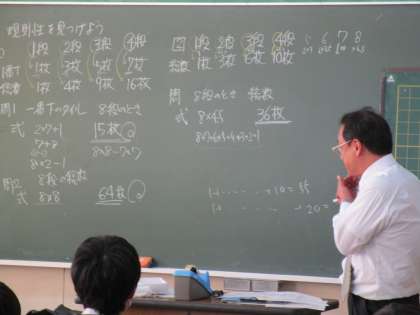 規則性を見つけよう
1段 2段 3段 4段
一番下 1枚 3枚 5枚 7枚
総数 1枚 4枚 9枚 16枚
問1 一番下のタイル 8段のとき
式 2×7+1 15枚
7+8
8×2-1
8×8-7×7
問2 8段の総数
式 8×8 64枚
図 1段 2段 3段 4段 5 6 7 8
総数 1枚 3枚 6枚 10枚
問 8段のとき 総数
式 8×4.5 36枚
8+7+6+5+4+3+2+1
1+ …… +10=55
1+ …… +20=